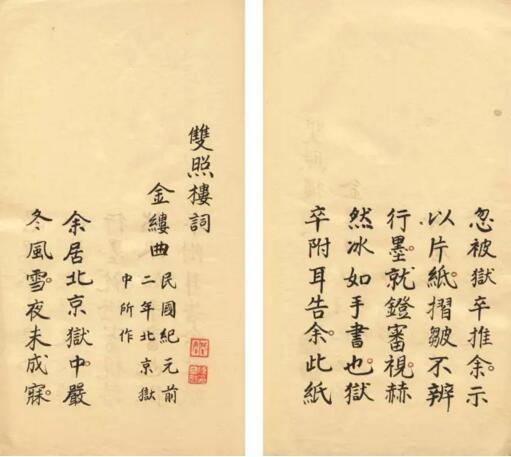 雙照樓詞
金縷曲
民國紀元前
二年北京獄
中所作
余居北京獄中。嚴
冬風雪。夜未成寐。
忽被獄卒推余。示
以片紙。摺皺不辨
行墨。就鐙審視赫
然冰如手書也。獄
卒附耳告余。此紙